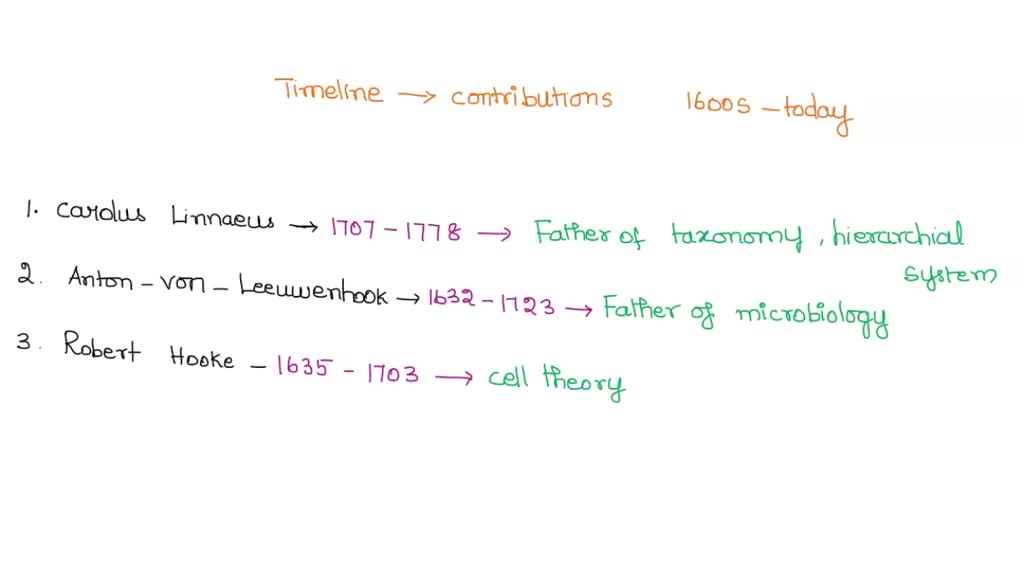 Timeline → contributions 1600s - today
1. Carolus Linnaeus → 1707 - 1778 → Father of taxonomy, hierarchial system
2. Anton - von - Leeuwenhook → 1632 - 1723 → Father of microbiology
3. Robert Hooke - 1635 - 1703 → cell theory